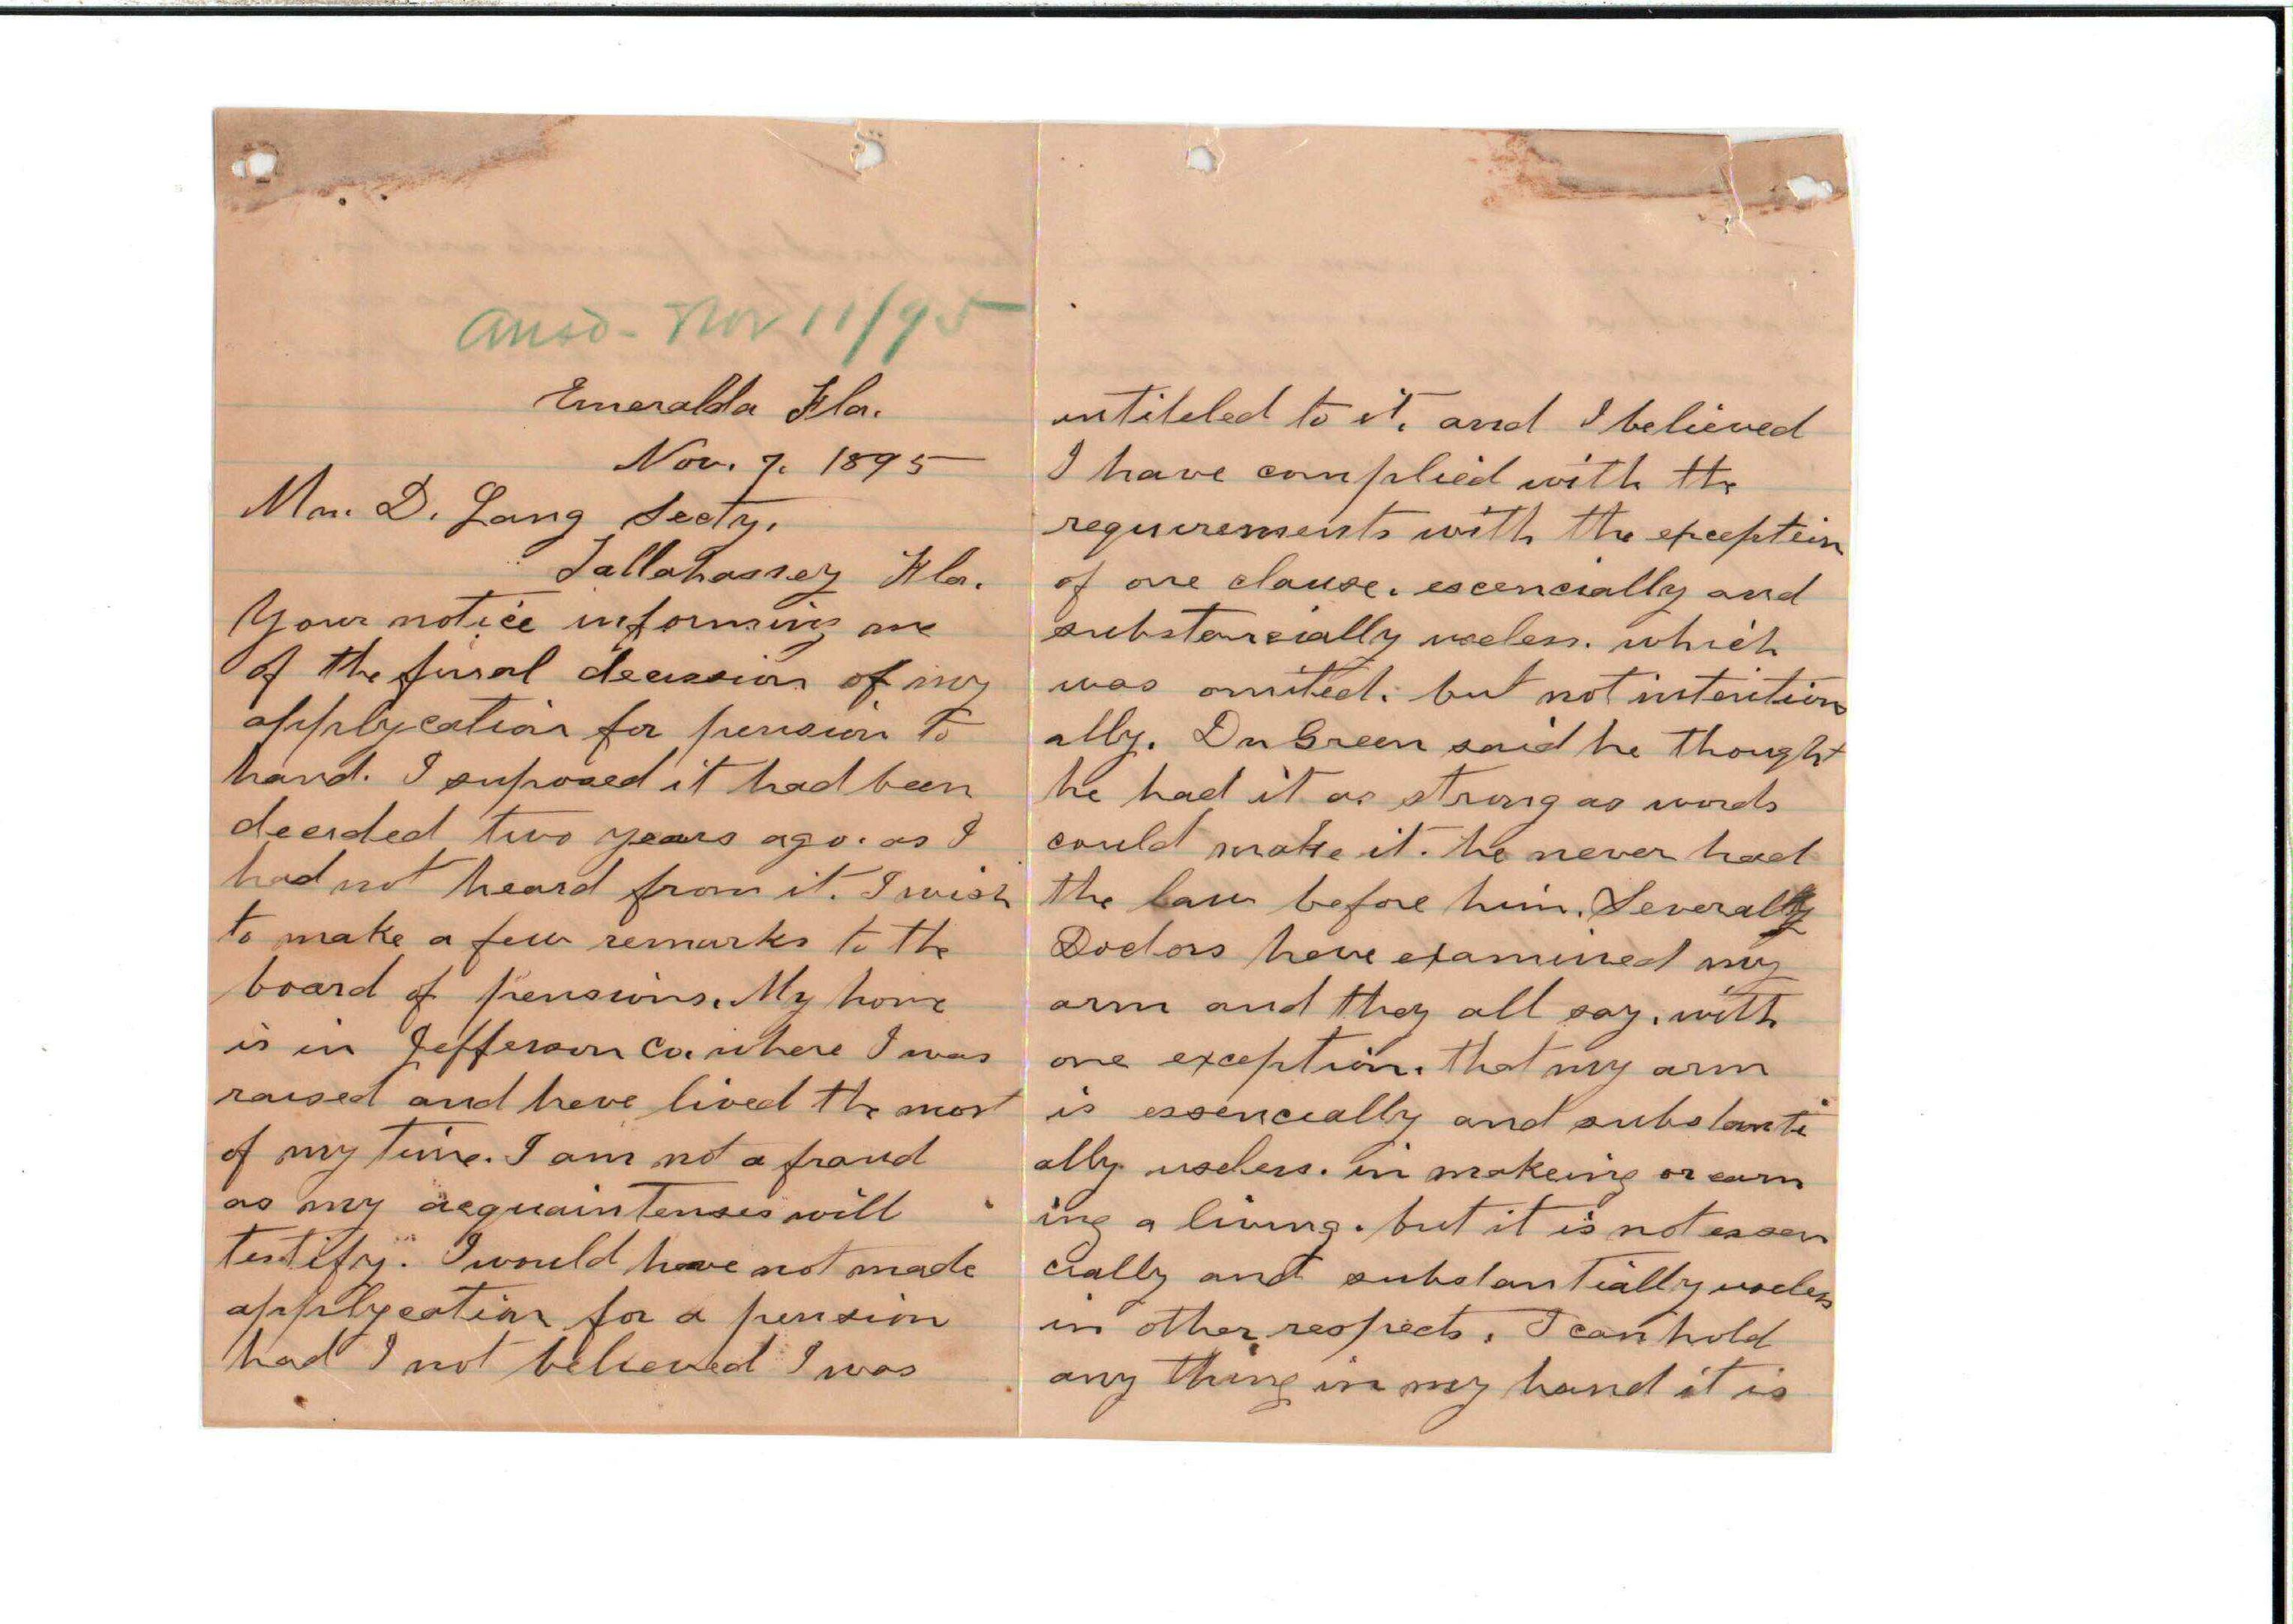 Ansd - Nov 11/95
Emeralda Fla.
Nov. 7. 1895
Mr. D. Lang Secty.
Tallahassey Fla.
Your notice informing me
of the final decission of my
applycation for pension to
hand. I suposed it had been
decided two years ago. as I
had not heard from it. I wish
to make a few remarks to the
board of pensions. My home
is in Jefferson Co. where I was
raised and have lived the most
of my time. I am not a fraud
as my acquaintenses will
testify. I would have not made
applycation for a pension
had I not believed I was
intiteled to it. and I believed
I have complied with the
requirements with the exception
of one clause. escencially and
substancially useless. which
was omited. but not intention
ally. Dr Green said he thought
he had it as strong as words
could make it. he never had
the law before him. Several
Doctors have examined my
arm and they all say. with
one exception. that my arm
is essencially and substanti
ally useless. in makeing or earn
ing a living. but it is not essen
cially and substantially useless
in other respects. I can hold
any thing in my hand it is